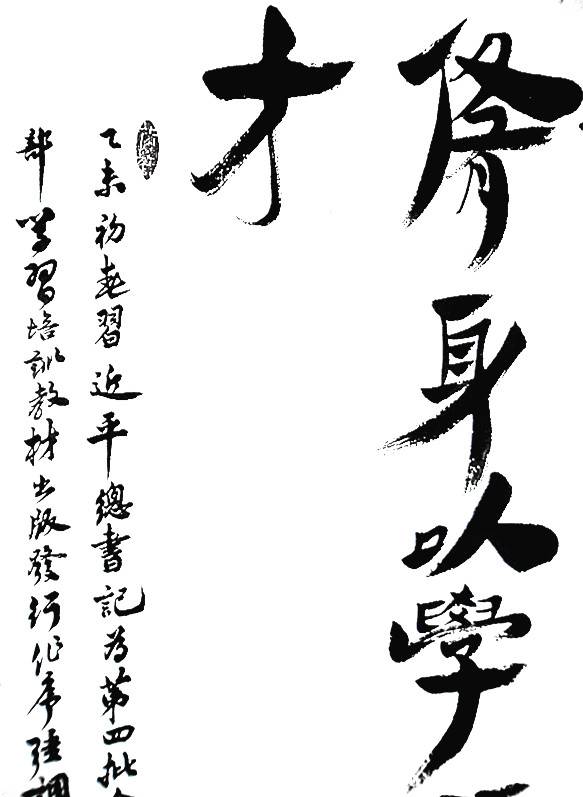 脩身以學
才
乙未初春習近平總書記為第四批
部學習培訓教材出版發行作序強調